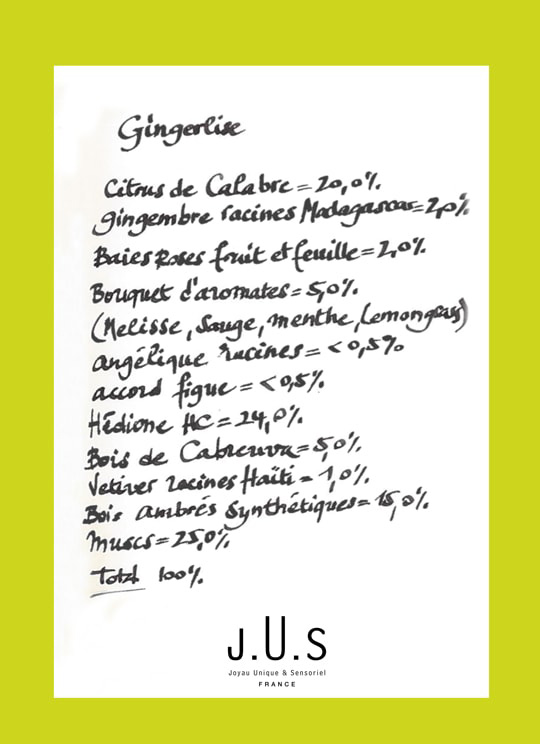 Gingerlise
Citrus de Calabre = 20,0%
gingembre racines Madagascar = 2,0%
Baies Roses fruit et feuille = 2,0%
Bouquet d'aromates = 5,0%
(Melisse, Sauge, menthe, Lemongrass)
angélique racines = <0,5%
accord figue = <0,5%
Hédione HC = 24,0%
Bois de Cabreuva = 5,0%
Vetiver racines Haïti = 1,0%
Bois ambrés synthétiques = 15,0%
Muscs = 25,0%
Total 100%
J.U.S
Joyau Unique & Sensoriel
FRANCE